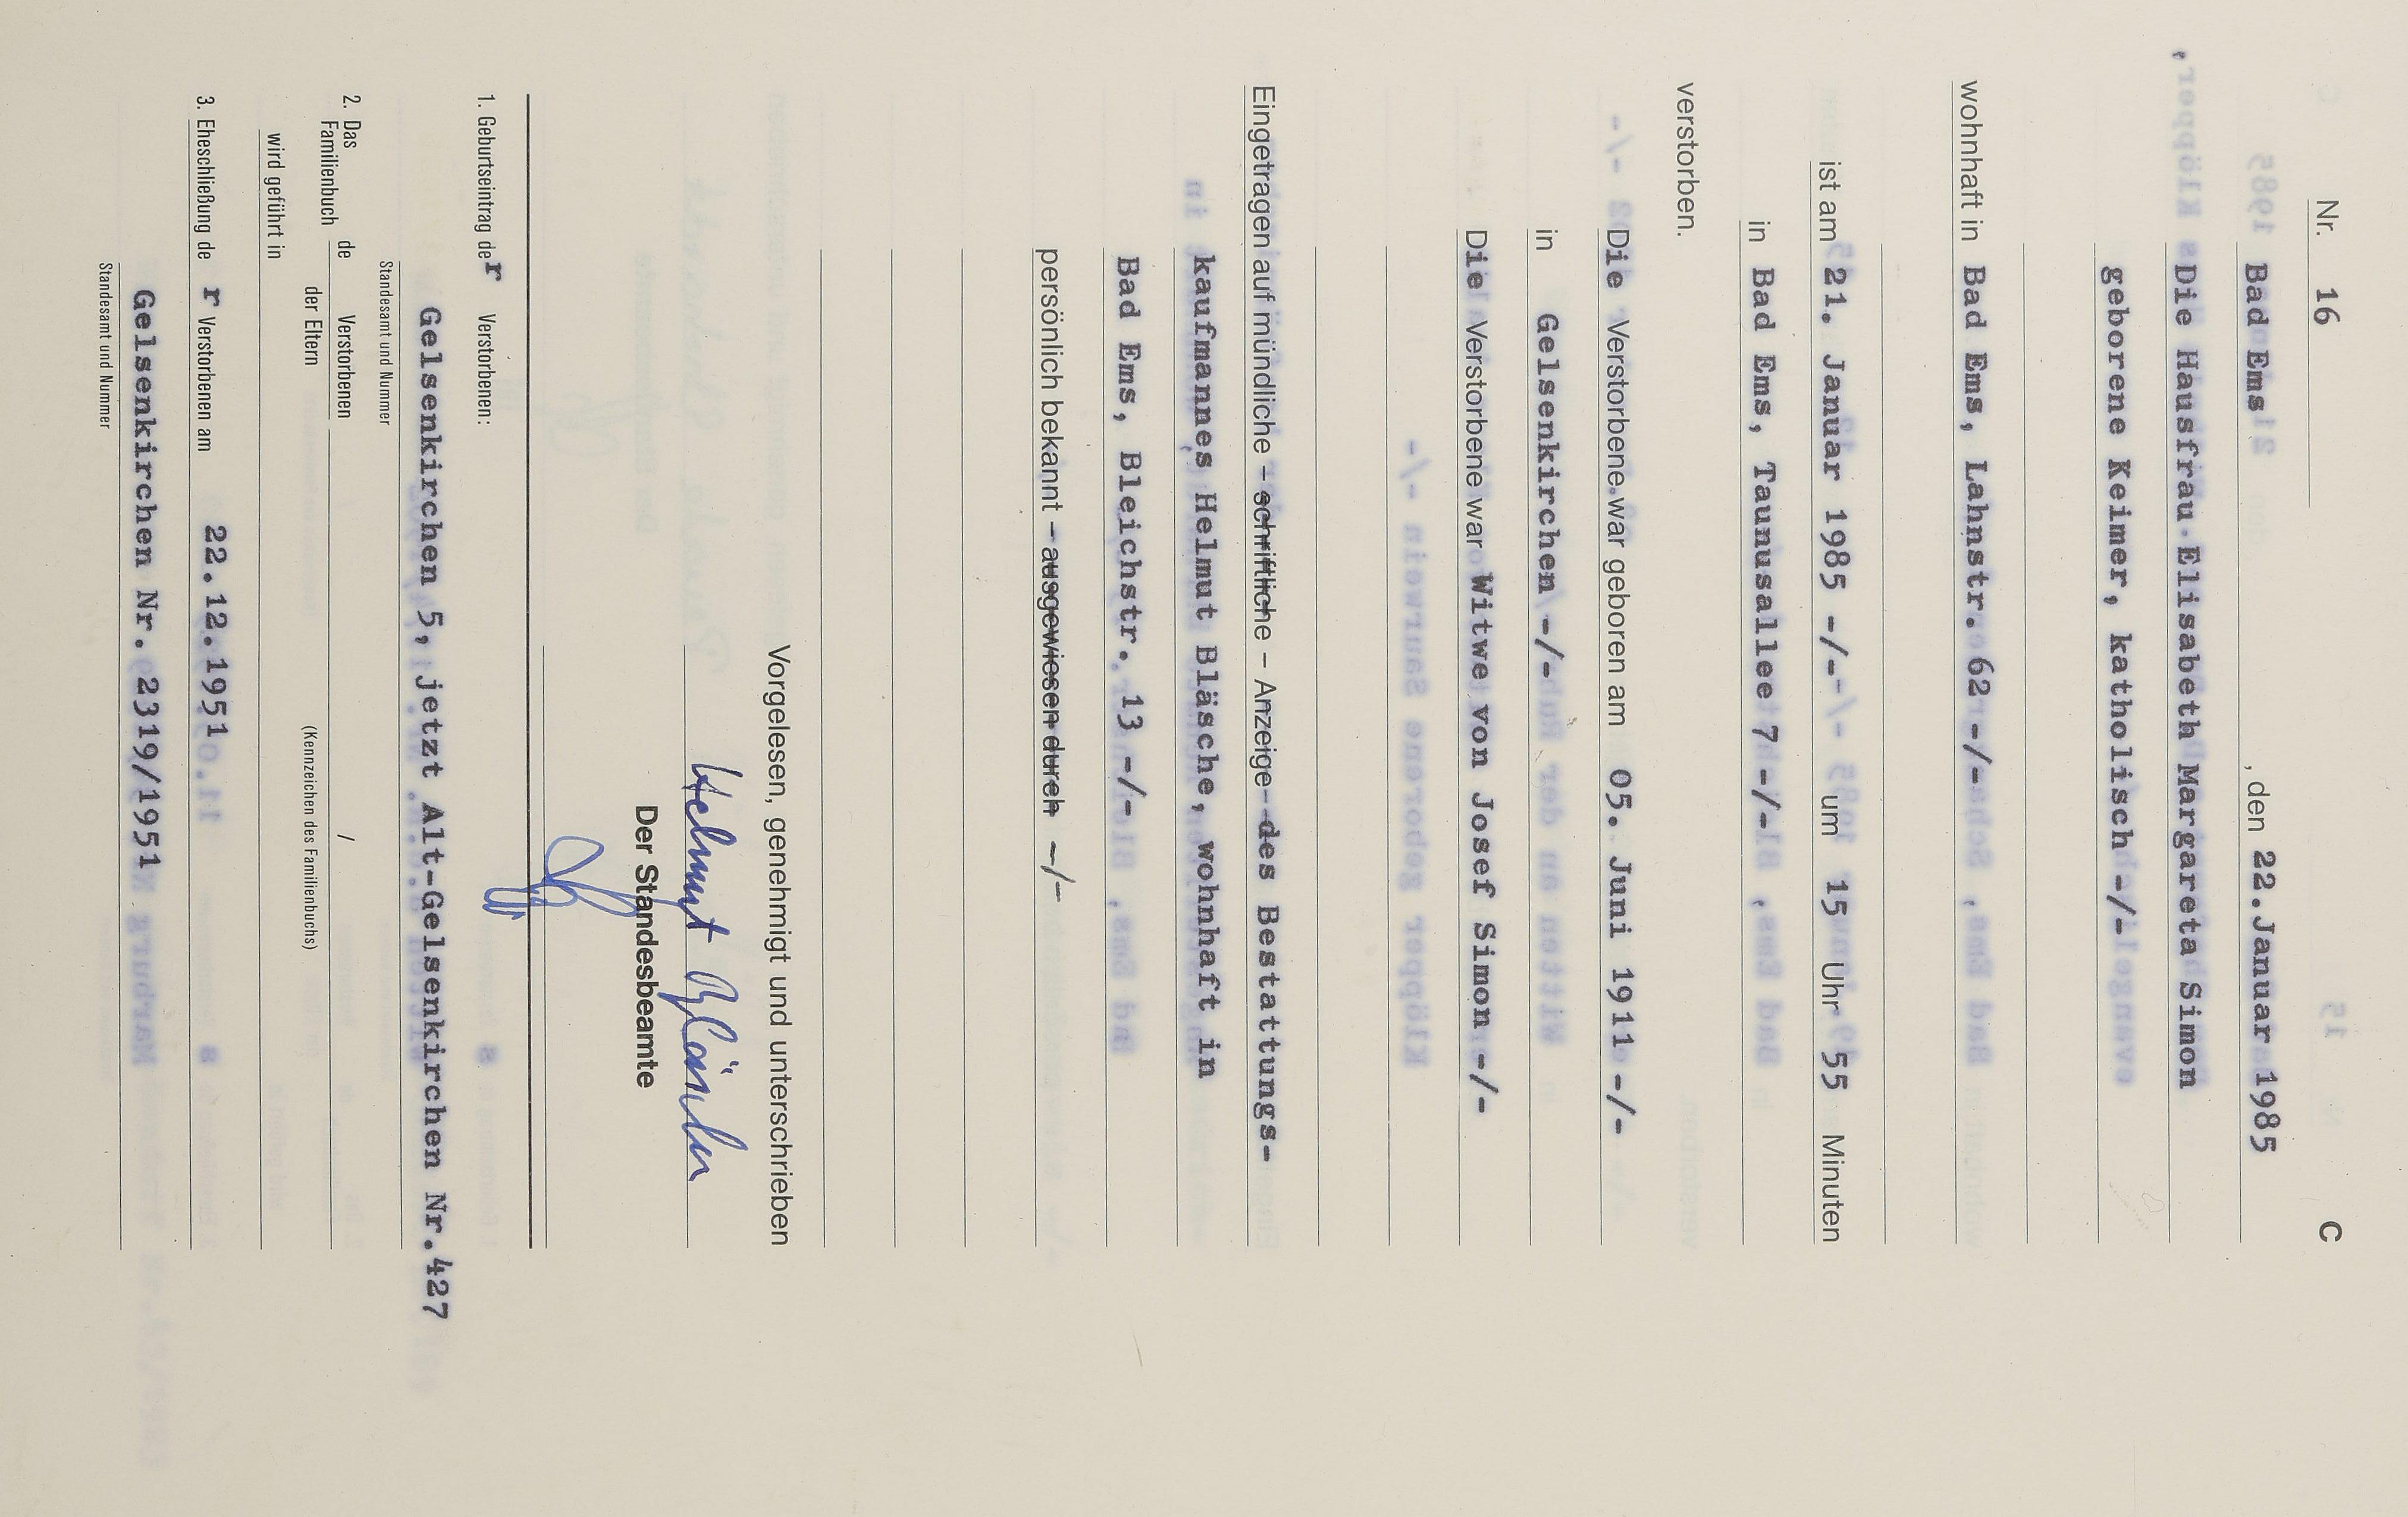 C
Nr. 16
Bad Ems, den 22.Januar 1985
Die Hausfrau Elisabeth Margareta Simon
geborene Keimer, katholisch -/-
wohnhaft in Bad Ems, Lahnstr. 62 -/-
ist am 21. Januar 1985 -/- um 15 Uhr 55 Minuten
in Bad Ems, Taunusallee 7 -/-
verstorben.
Die Verstorbene war geboren am 05. Juni 1911 -/-
in Gelsenkirchen -/-
Die Verstorbene war Witwe von Josef Simon -/-
Eingetragen auf mündliche – schriftliche – Anzeige - des Bestattungs-
kaufmannes Helmut Bläsche, wohnhaft in
Bad Ems, Bleichstr. 13 -/-
persönlich bekannt – ausgewiesen durch -/-
Vorgelesen, genehmigt und unterschrieben
Helmut Bläsche
Der Standesbeamte
1. Geburtseintrag der Verstorbenen:
Gelsenkirchen 5, jetzt Alt-Gelsenkirchen Nr.427
Standesamt und Nummer
2. Das Familienbuch de Verstorbenen /
der Eltern (Kennzeichen des Familienbuchs)
wird geführt in
3. Eheschließung de r Verstorbenen am 22.12.1951
Gelsenkirchen Nr. 2319/1951
Standesamt und Nummer